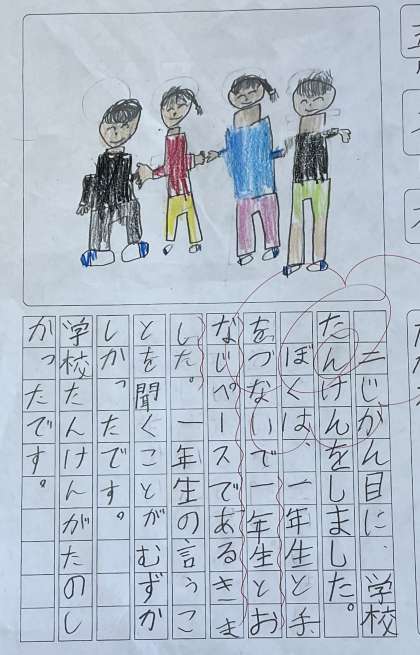 二じかん目に、学校
たんけんをしました。
ぼくは、一年生と手
をつないで一年生とお
なじペースであるきま
した。一年生の言うこ
とを聞くことがむずか
しかったです。
学校たんけんがたのし
かったです。